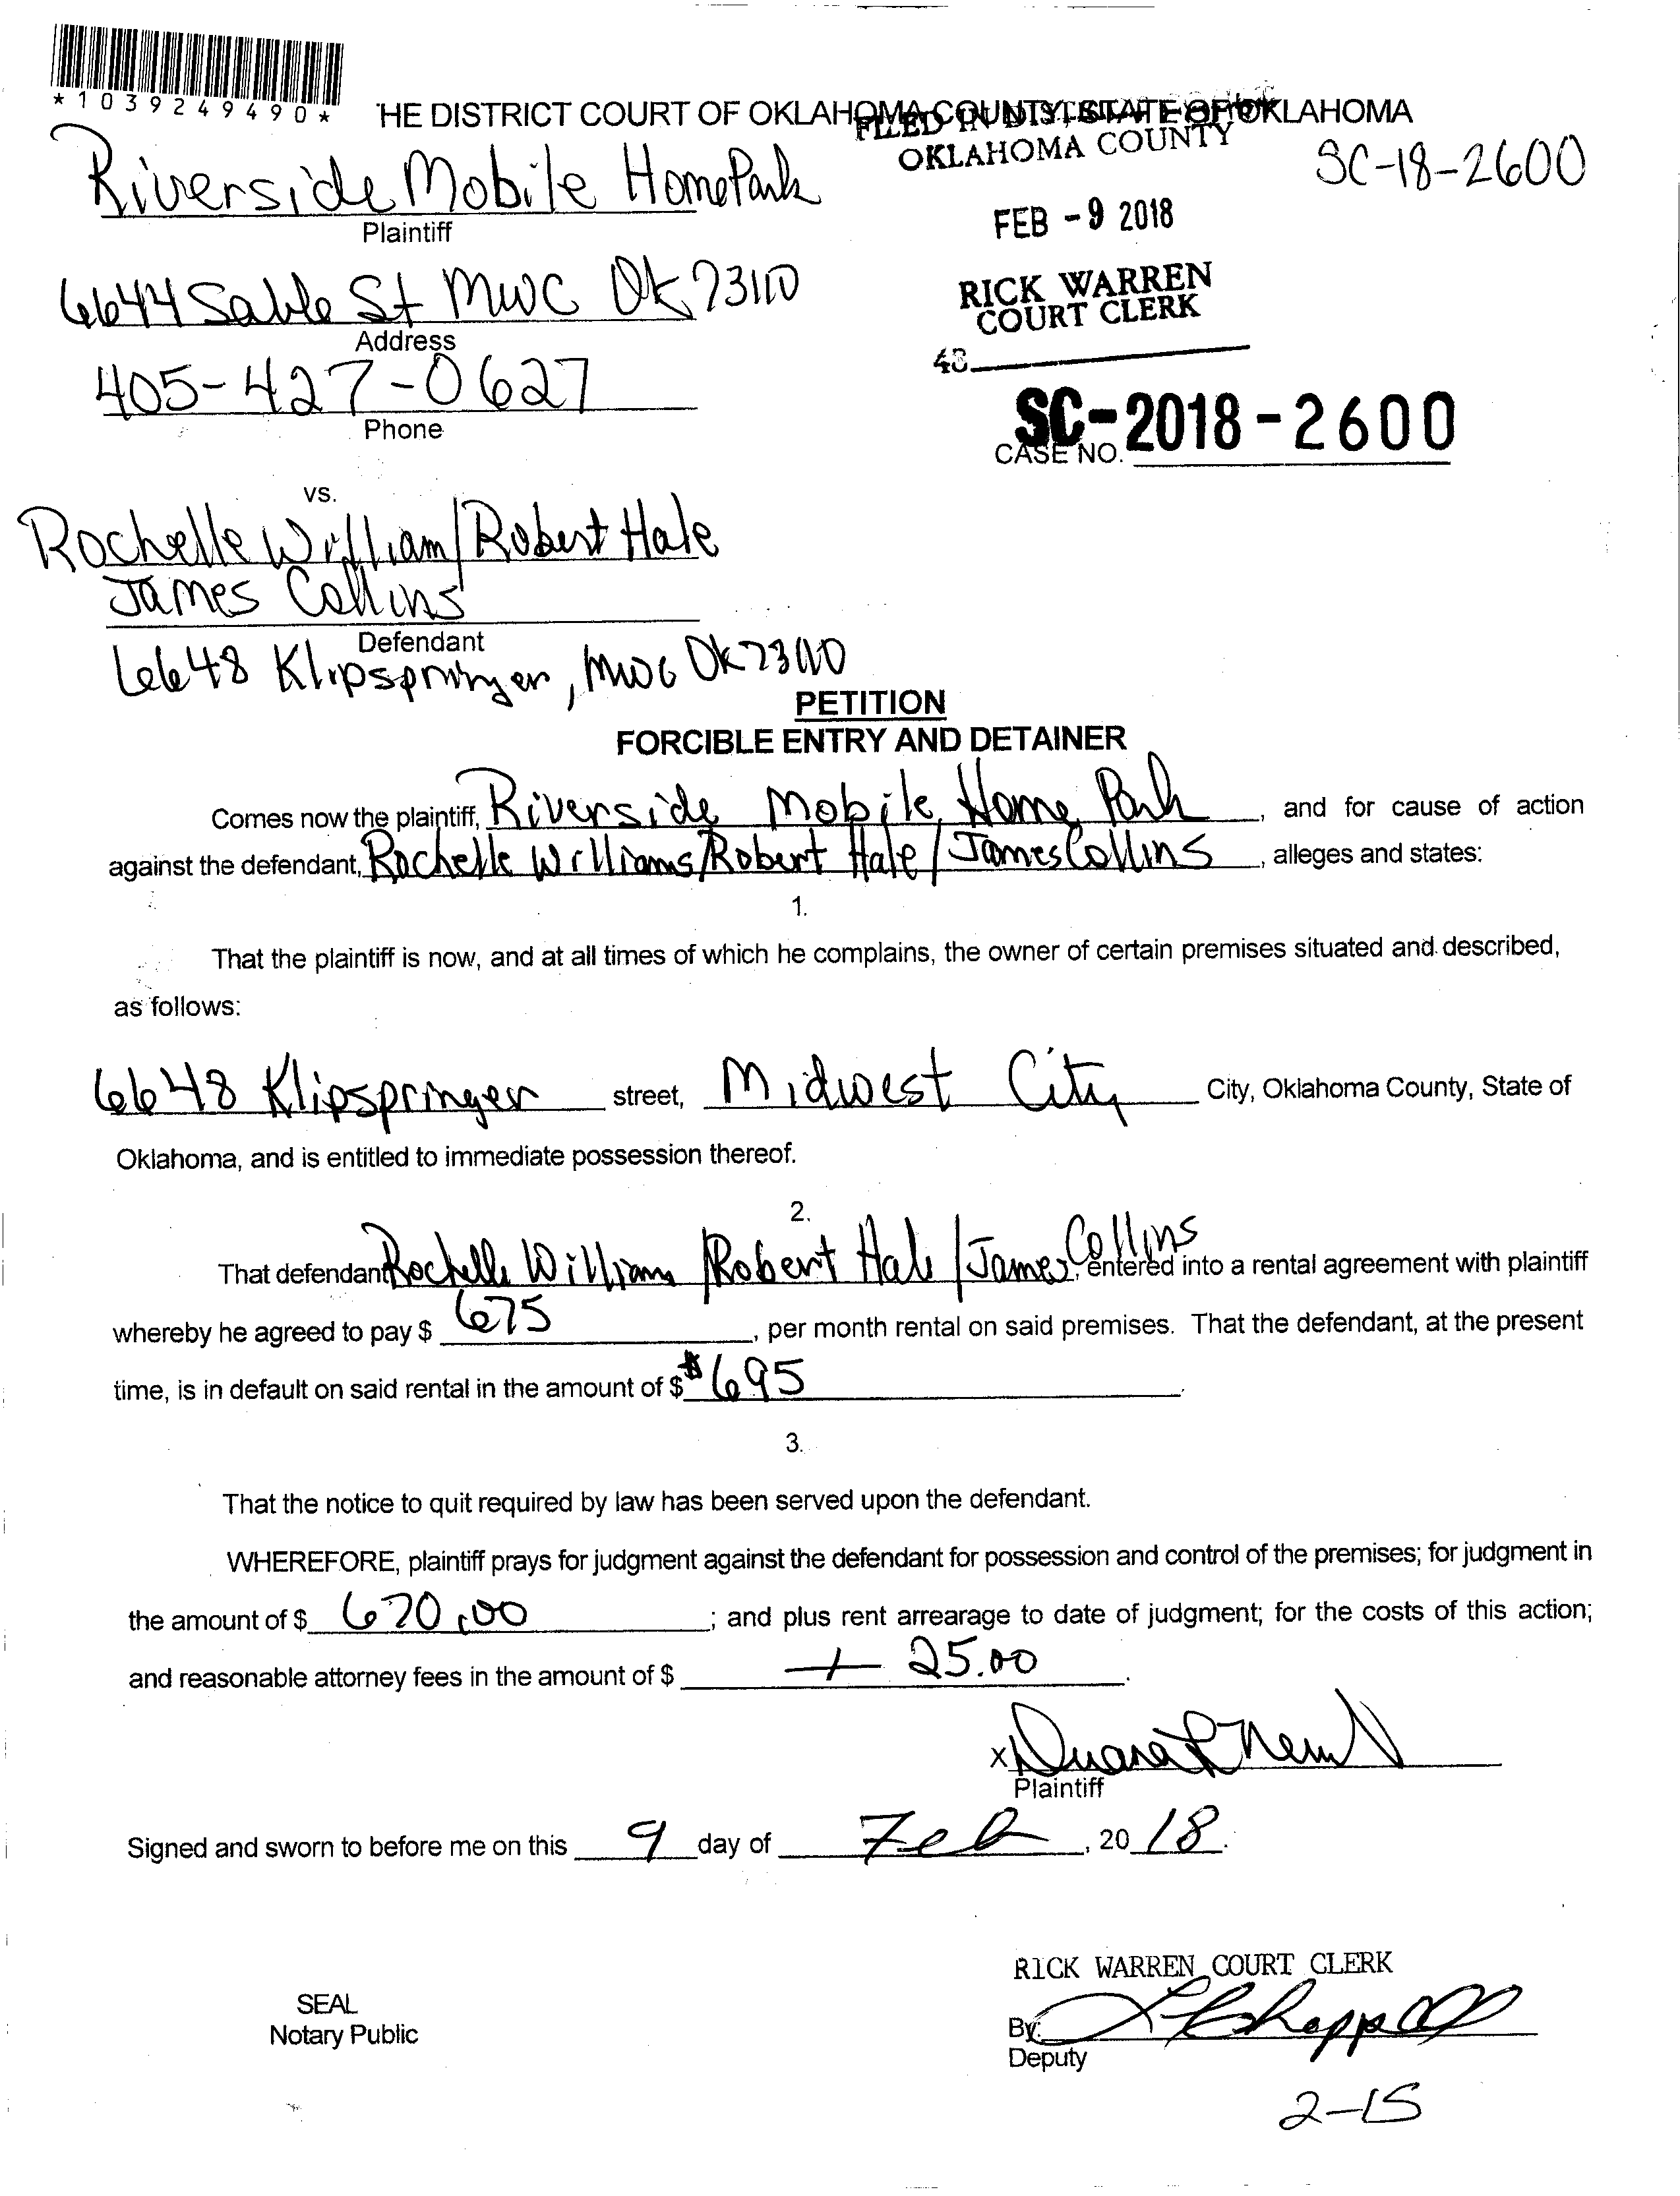 *1039249490*
HE DISTRICT COURT OF OKLAHOMA COUNTY, STATE OF OKLAHOMA
FILED IN DISTRICT COURT
OKLAHOMA COUNTY
SC-18-2600
Riverside Mobile Home Park
Plaintiff
FEB - 9 2018
6644 Sable St MWC Ok 73110
Address
RICK WARREN
COURT CLERK
48
405-427-0627
Phone
SC-2018-2600
CASE NO.
vs.
Rochelle William/Robert Hale
James Collins
Defendant
6648 Klipspringer, MWC Ok 73110
PETITION
FORCIBLE ENTRY AND DETAINER
Comes now the plaintiff, Riverside Mobile Home Park, and for cause of action
against the defendant, Rochelle Williams/Robert Hale/James Collins, alleges and states:
1.
That the plaintiff is now, and at all times of which he complains, the owner of certain premises situated and described,
as follows:
6648 Klipspringer street, Midwest City City, Oklahoma County, State of
Oklahoma, and is entitled to immediate possession thereof.
2.
That defendant Rochelle William/Robert Hale/James Collins, entered into a rental agreement with plaintiff
whereby he agreed to pay $ 675, per month rental on said premises. That the defendant, at the present
time, is in default on said rental in the amount of $ $695.
3.
That the notice to quit required by law has been served upon the defendant.
WHEREFORE, plaintiff prays for judgment against the defendant for possession and control of the premises; for judgment in
the amount of $ 670.00; and plus rent arrearage to date of judgment; for the costs of this action;
and reasonable attorney fees in the amount of $ + 25.00.
x
Plaintiff
Signed and sworn to before me on this 9 day of Feb, 20 18.
RICK WARREN COURT CLERK
SEAL
Notary Public
By: Chappell
Deputy
2-15